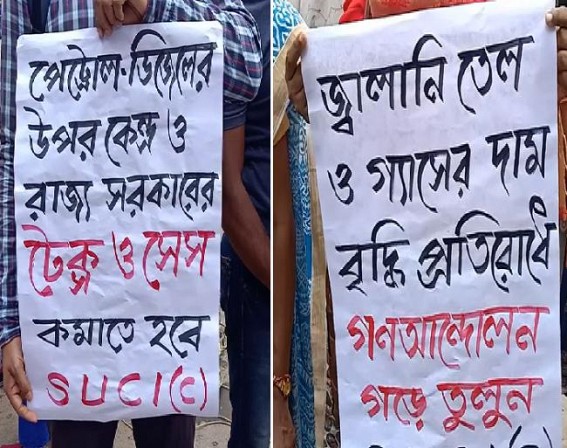 পেট্রোল-ডিজেলের
উপর কেন্দ্র ও
রাজ্য সরকারের
টেক্স ও সেস
কমাতে হবে
SUCI(C)
জ্বালানি তেল
ও গ্যাসের দাম
বৃদ্ধি প্রতিরোধে
গনআন্দোলন
গড়ে তুলুন